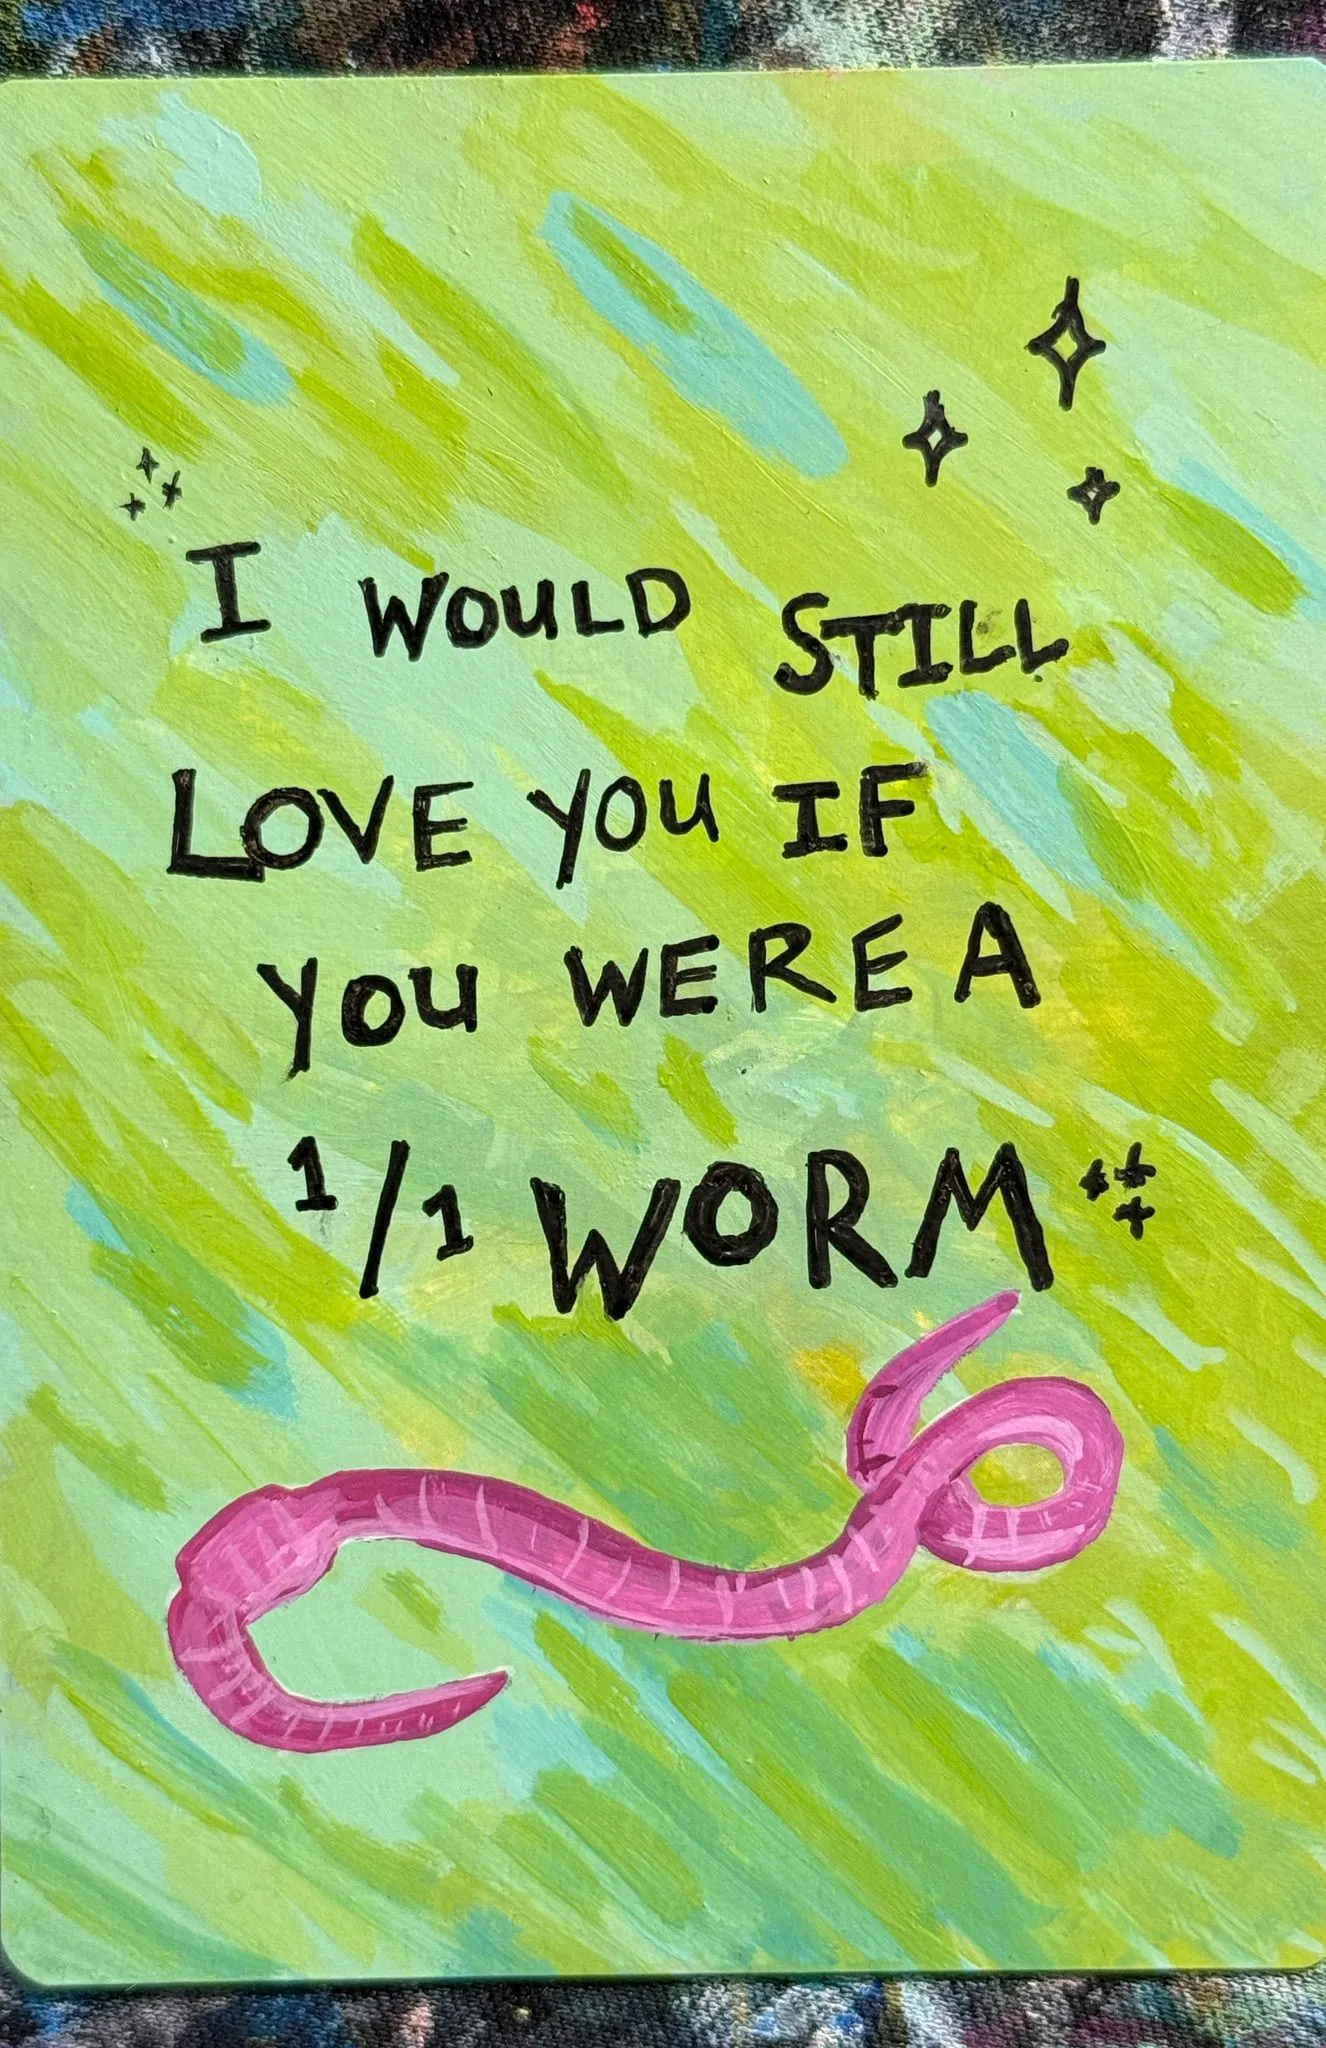 I WOULD STILL
LOVE YOU IF
YOU WERE A
1/1 WORM